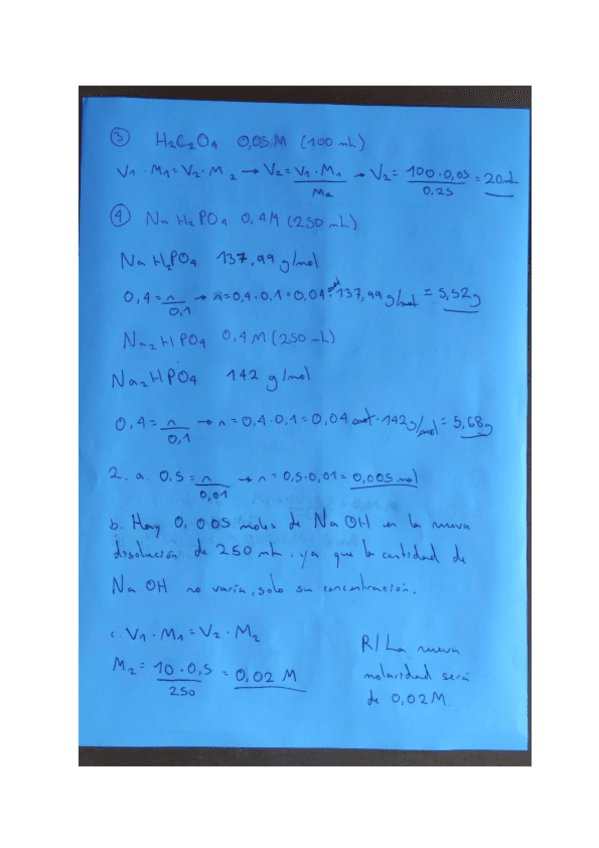 ③ H₂C₂O₄ 0,05 M (100 mL)
V₁ · M₁ = V₂ · M₂ → V₂ = V₁ · M₁ / M₂ → V₂ = 100 · 0,05 / 0,25 = 20 mL
④ Na H₂PO₄ 0,4 M (250 mL)
Na H₂PO₄ 137,99 g/mol
0,4 = n / 0,1 → n = 0,4 · 0,1 = 0,04 mol · 137,99 g/mol = 5,52 g
Na₂HPO₄ 0,4 M (250 mL)
Na₂HPO₄ 142 g/mol
0,4 = n / 0,1 → n = 0,4 · 0,1 = 0,04 mol · 142 g/mol = 5,68 g
2. a. 0,5 = n / 0,01 → n = 0,5 · 0,01 = 0,005 mol
b. Hay 0,005 moles de NaOH en la nueva
disolución de 250 mL, ya que la cantidad de
NaOH no varía, solo su concentración.
c. V₁ · M₁ = V₂ · M₂
M₂ = 10 · 0,5 / 250 = 0,02 M
R/ La nueva
molaridad será
de 0,02 M.